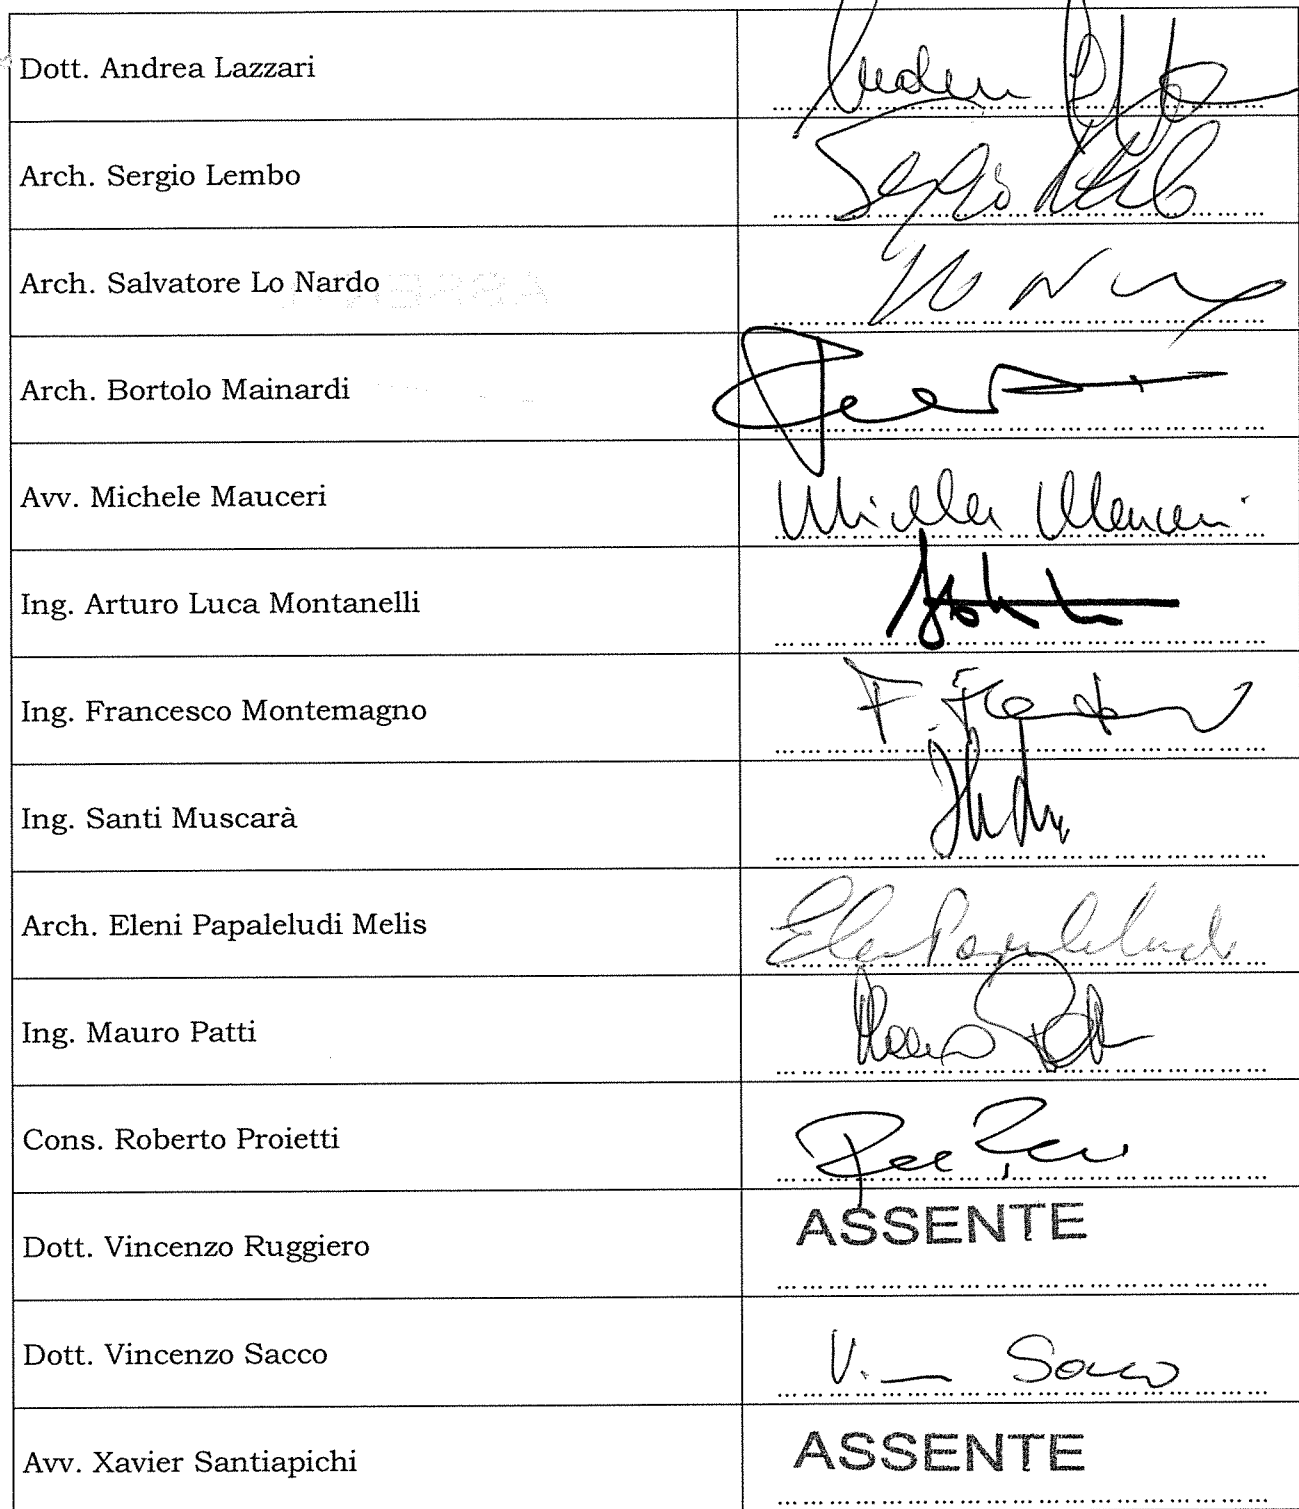 Dott. Andrea Lazzari
Arch. Sergio Lembo
Sergio Lembo
Arch. Salvatore Lo Nardo
Arch. Bortolo Mainardi
Avv. Michele Mauceri
Michele Mauceri
Ing. Arturo Luca Montanelli
Ing. Francesco Montemagno
Ing. Santi Muscarà
Arch. Eleni Papaleludi Melis
Ing. Mauro Patti
Mauro Patti
Cons. Roberto Proietti
Dott. Vincenzo Ruggiero ASSENTE
Dott. Vincenzo Sacco
V. Sacco
Avv. Xavier Santiapichi ASSENTE